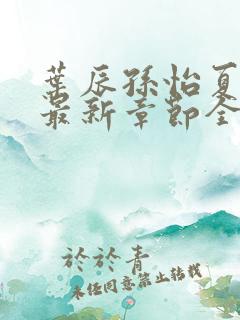 葉辰孫怡夏
最新章節全
於於青
未经同意禁止转载